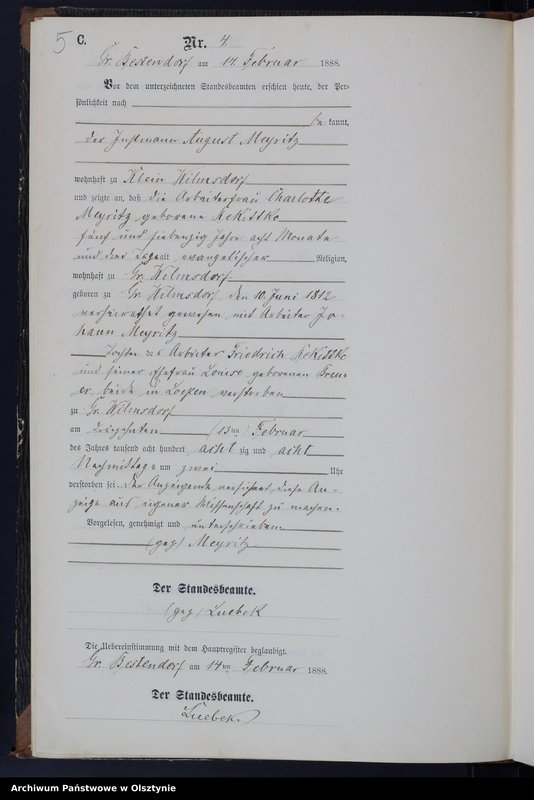 5 C.
Nr. 4.
Gr. Bestendorf am 14. Februar 1888.
Vor dem unterzeichneten Standesbeamten erschien heute, der Per-
sönlichkeit nach
be kannt,
der Instmann August Meyritz
wohnhaft zu Klein Wilmsdorf
und zeigte an, daß die Arbeiterfrau Charlotte
Meyritz geborene
fünf und siebenzig Jahre acht Monate
und drei Tage alt, evangelischer Religion,
wohnhaft zu Gr. Wilmsdorf
geboren zu Gr. Wilmsdorf den 10. Juni 1812
verheirathet gewesen mit Arbeiter Jo-
hann Meyritz
Tochter des Arbeiter Friedrich
und seiner Ehefrau Louise geborenen
er beide in Locken verstorben
zu Gr. Wilmsdorf
am dreizehnten (13ten) Februar
des Jahres tausend acht hundert acht zig und acht
Nachmittags um zwei Uhr
verstorben sei. Der Anzeigende versichert, diese An-
zeige aus eigener Wissenschaft zu machen.
Vorgelesen, genehmigt und unterschrieben
(gez) Meyritz
Der Standesbeamte.
(gez) Luebek
Die Uebereinstimmung mit dem Hauptregister beglaubigt.
Gr. Bestendorf am 14ten Februar 1888.
Der Standesbeamte.
Luebek.
Archiwum Państwowe w Olsztynie